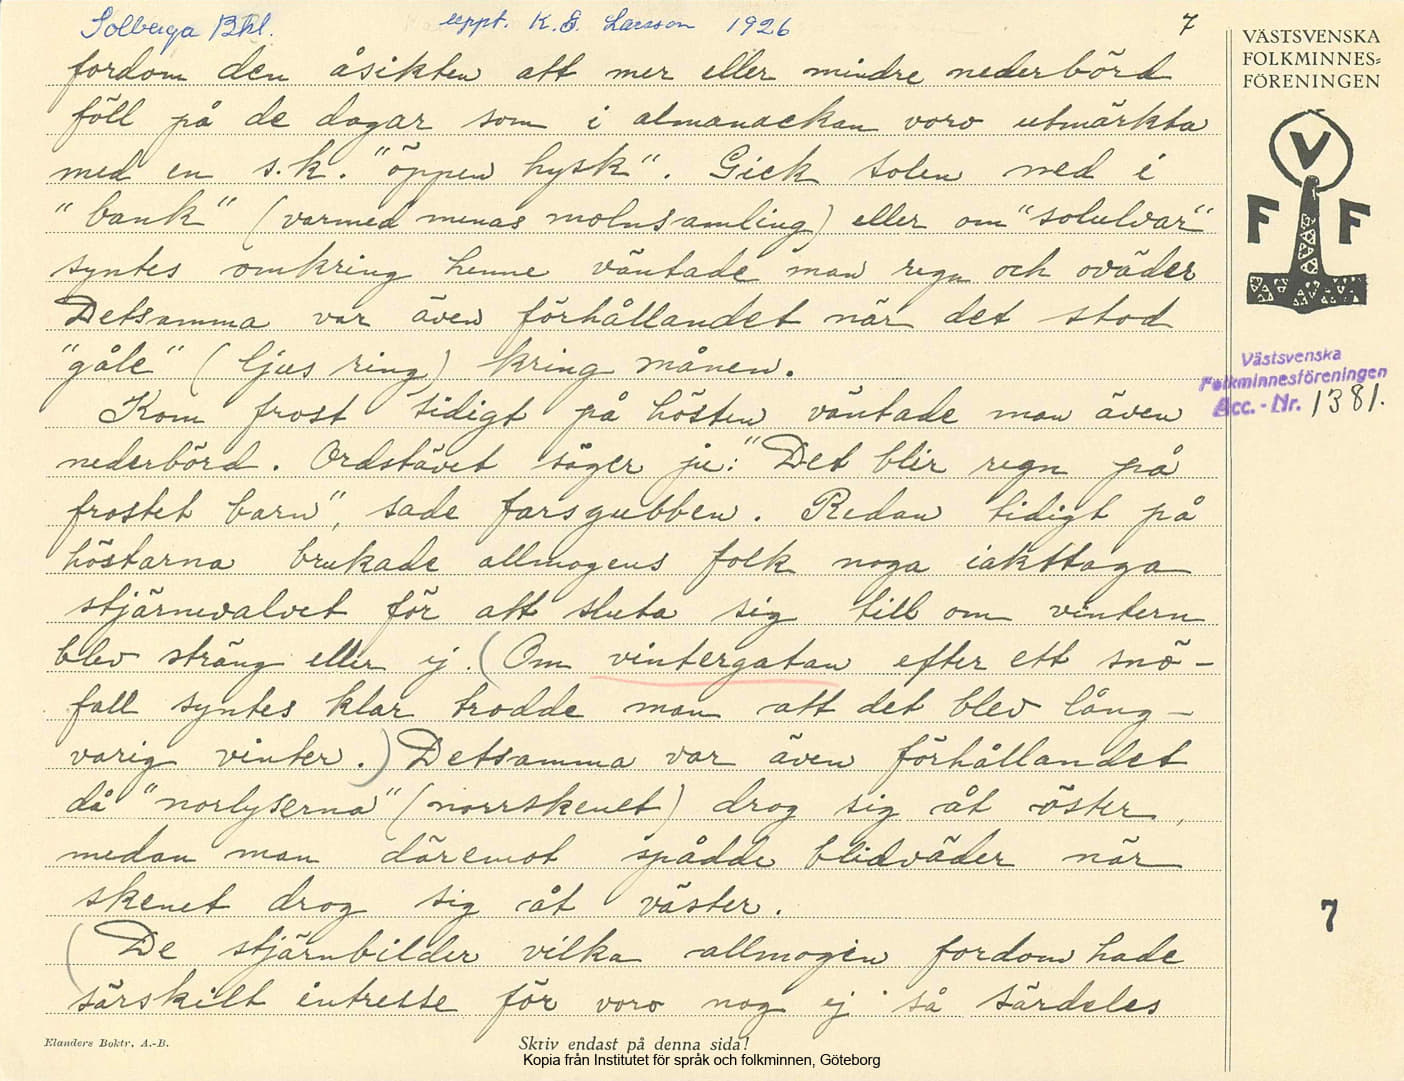 Solberga Bhl. uppt. K. G. Larsson 1926 7
fordom den åsikten att mer eller mindre nederbörd
föll på de dagar som i almanackan voro utmärkta
med en s.k. "öppen hysk". Gick solen ned i
"bank" (varmed menas molnsamling) eller om "solulvar"
syntes omkring henne väntade man regn och oväder
Detsamma var även förhållandet när det stod
"gåle" (ljus ring) kring månen.
Kom frost tidigt på hösten väntade man även
nederbörd. Ordstävet säger ju: "Det blir regn på
frostet barn", sade farsgubben. Redan tidigt på
höstarna brukade allmogens folk noga iakttaga
stjärnevalvet för att sluta sig till om vintern
blev sträng eller ej. (Om vintergatan efter ett snö-
fall syntes klar trodde man att det blev lång-
varig vinter.) Detsamma var även förhållandet
då "norlyserna" (norrskenet) drog sig åt öster,
medan man däremot spådde blidväder när
skenet drog sig åt väster.
(De stjärnbilder vilka allmogen fordom hade
särskilt intresse för voro nog ej så särdeles
VÄSTSVENSKA
FOLKMINNES-
FÖRENINGEN
V
F F
Västsvenska
Folkminnesföreningen
Acc.-Nr. 1381.
7
Elanders Boktr. A.-B.
Skriv endast på denna sida!
Kopia från Institutet för språk och folkminnen, Göteborg